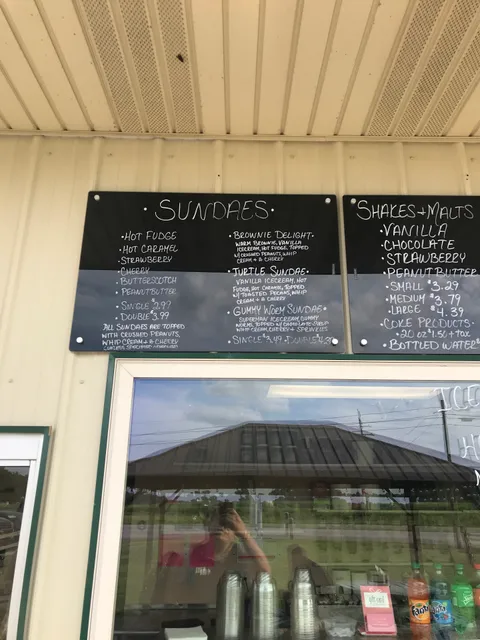 • SUNDAES •
• HOT FUDGE
• HOT CARAMEL
• STRAWBERRY
• CHERRY
• BUTTERSCOTCH
• PEANUTBUTTER
• SINGLE $2.99
• DOUBLE $3.99
ALL SUNDAES ARE TOPPED
WITH CRUSHED PEANUTS,
WHIP CREAM + A CHERRY
UNLESS SPECIFIED
• BROWNIE DELIGHT •
WARM BROWNIE, VANILLA
ICECREAM, HOT FUDGE, TOPPED
W/ CRUSHED PEANUTS, WHIP
CREAM + A CHERRY
• TURTLE SUNDAE •
VANILLA ICECREAM, HOT
FUDGE, HOT CARAMEL, TOPPED
W/ TOASTED PECANS, WHIP
CREAM + A CHERRY
• GUMMY WORM SUNDAE •
SUPERMAN ICECREAM, GUMMY
WORMS, TOPPED W/ CHOCOLATE SYRUP
WHIP CREAM, CHERRY + SPRINKLES
• SINGLE $3.49 • DOUBLE
SHAKES + MALTS
• VANILLA
• CHOCOLATE
• STRAWBERRY
• PEANUT BUTTER
SMALL $3.29
MEDIUM $3.79
LARGE $4.39
• COKE PRODUCTS •
• 20 oz $1.50 + TAX
• BOTTLED WATER
ICE
Fanta